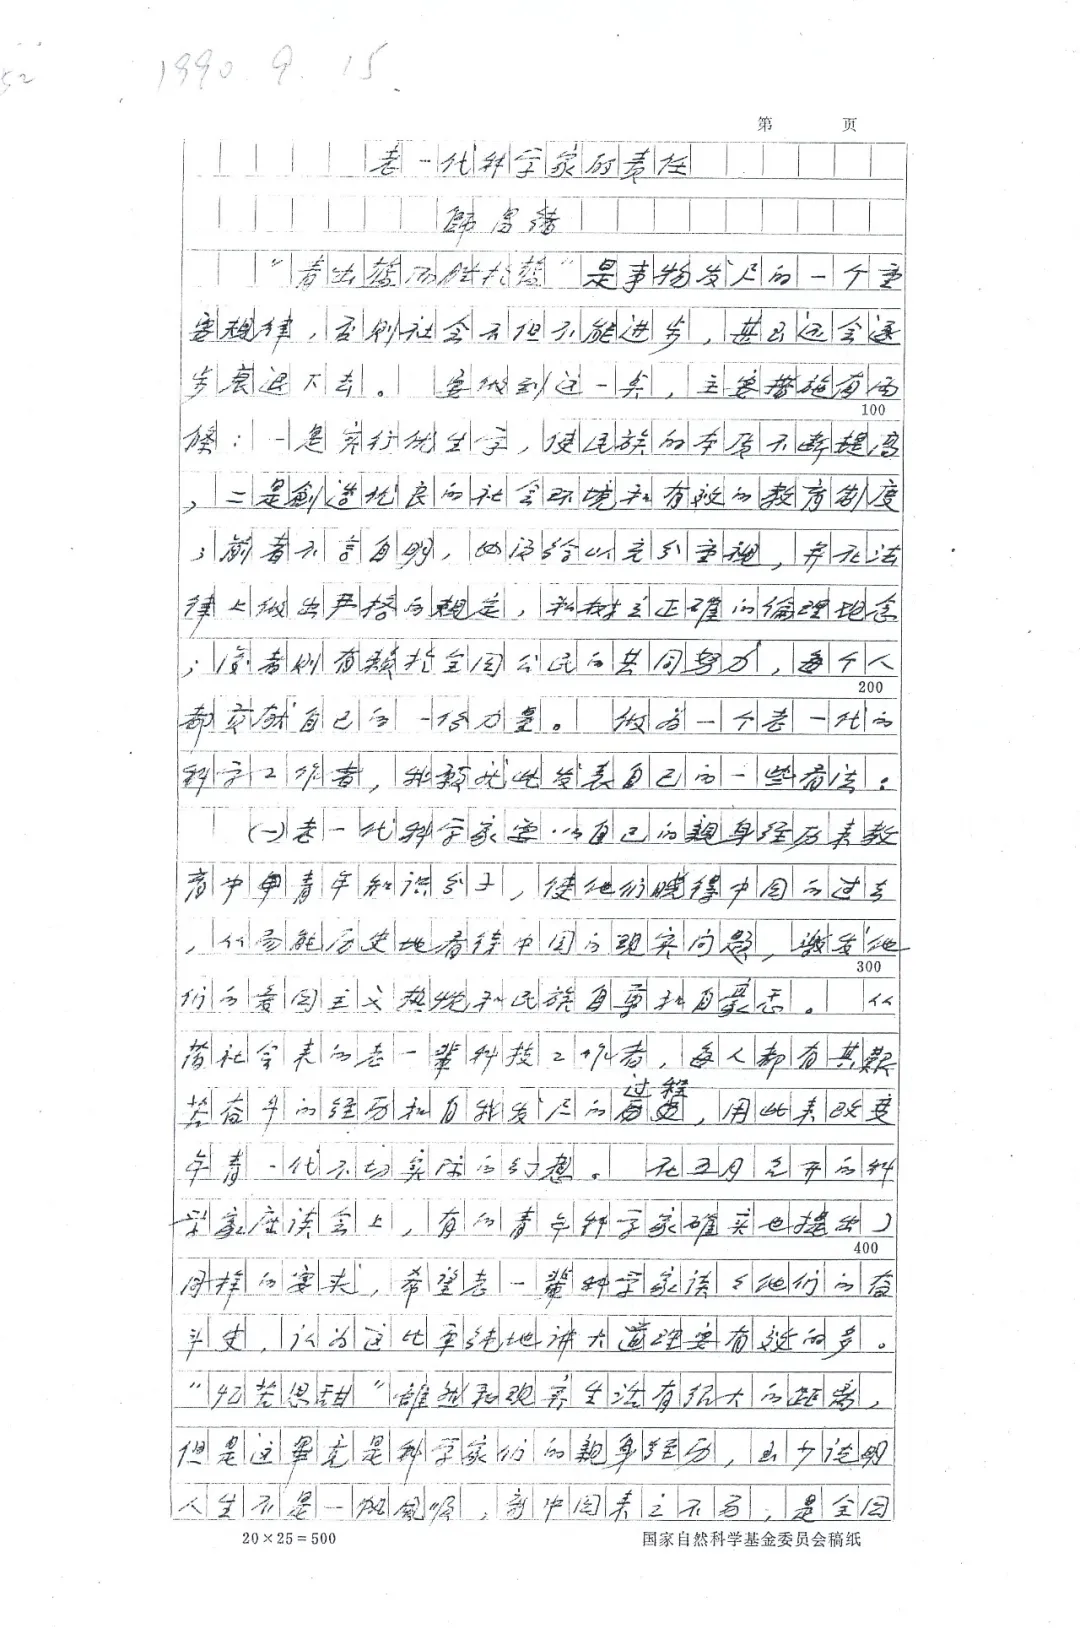 52
1990.9.15
第 页
老一代科学家的责任
师昌绪
“青出蓝而胜于蓝”是事物发展的一个重
要规律，否则社会不但不能进步，甚至还会逐
步衰退下去。要做到这一点，主要措施有两
条：一是实行优生学，使民族的本质不断提高
，二是创造优良的社会环境和有效的教育制度
；前者不言自明，必须给以充分重视，并在法
律上做出严格的规定，和树立正确的伦理观念
；后者则有赖于全国公民的共同努力，每个人
都贡献自己的一份力量。做为一个老一代的
科学工作者，我愿就此发表自己的一些看法：
(一)老一代科学家要以自己的亲身经历来教
育中青年知识分子，使他们晓得中国的过去
，从而能历史地看待中国的现实问题，激发他
们的爱国主义热忱和民族自尊和自豪感。从
旧社会来的老一辈科技工作者，每人都有其艰
苦奋斗的经历和自我发展的过程，用此来改变
年青一代不切实际的幻想。在五月召开的科
学家座谈会上，有的青年科学家确实也提出了
同样的要求，希望老一辈科学家谈谈他们的奋
斗史，认为这比单纯地讲大道理要有效的多。
“忆苦思甜”虽然和现实生活有很大的距离，
但是这毕竟是科学家们的亲身经历，至少说明
人生不是一帆风顺，新中国来之不易，是全国
100
200
300
400
20×25=500
国家自然科学基金委员会稿纸